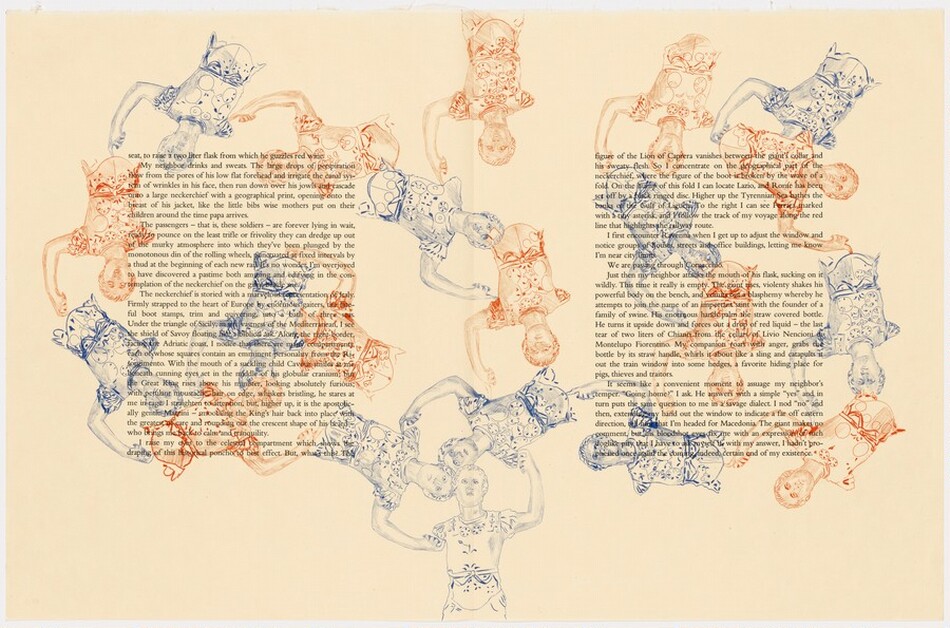 seat, to raise a two liter flask from which he guzzles red wine.
My neighbor drinks and sweats. The large drops of perspiration
flow from the pores of his low flat forehead and irrigate the canal sys-
tem of wrinkles in his face, then run down over his jowls, cascade
onto a large neckerchief with a geographical print, opening onto the
breast of his jacket, like the little bibs wise mothers put on their
children around the time papa arrives.
The passengers – that is, these soldiers – are forever lying in wait,
ready to pounce on the least trifle or frivolity they can dredge up out
of the murky atmosphere into which they've been plunged by the
monotonous din of the rolling wheels, punctuated at fixed intervals by
a thud at the beginning of each new rail. It's no wonder I'm overjoyed
to have discovered a pastime both amusing and edifying in the con-
templation of the neckerchief on the giant's
The neckerchief is storied with a marvelous representation of Italy.
Firmly strapped to the heart of Europe by
ful boot stamps, trim and into a three
Under the triangle of Sicily, of the Mediterranean, I see
the shield of Savoy floating like a biblical ark. Along the
Adriatic coast, I notice
Each of whose squares contain an eminent personality from the Ris-
orgimento. With the mouth of a suckling child Cavour at me
beneath cunning eyes set in the of his globular cranium; the
Great King rises above his minister, looking absolutely furious,
with pending edge, whiskers bristling, he stares at
me in rage. I straighten but, higher up, it is the apostolic-
ally gentle Mazzini – smoothing the King's hair back into place with
the greatest care and rounding off the crescent shape of his beard
who brings me back to calm and tranquility.
I raise my eyes to the compartment which shows the
draping of this historical poncho to best effect. But, what's this? The
figure of the Lion of Caprera vanishes between the giant's collar and
his sweaty flesh. So I concentrate on the geographical part of the
neckerchief, where the figure of the boot is broken by the way of a
fold. On the of this fold I can locate Lazio, and Rome has been
set off by a black ringed disc. Higher up the Tyrrenian Sea bathes the
banks of the Gulf of To the right I can see Ferrara marked
with a tiny asterisk, and I follow the track of my voyage along the red
line that highlights the railway route.
I first encounter Ravenna when I get up to adjust the window and
notice groups of houses, streets and office buildings, letting me know
I'm near city limits.
We are passing through
Just then my neighbor attaches the mouth of his flask, sucking on it
wildly. This time it really is empty. The giant tries, violently shakes his
powerful body on the bench, and blasphemy whereby he
attempts to join the name of an important saint with the founder of a
family of swine. His enormous hand grips the straw covered bottle.
He turns it upside down and forces out a drop of red liquid – the last
tear of two liters of Chianti from the cellars of Livio Nencioni di
Montelupo Fiorentino. My companion roars with anger, grabs the
bottle by its straw handle, which is about like a sling and catapults it
out the train window into some hedges, a favorite hiding place for
pigs, thieves and traitors.
It seems like a convenient moment to assuage my neighbor's
temper. "Going home?" I ask. He answers with a simple "yes" and in
turn puts the same question to me in a savage dialect. I nod "no" and
then, extending my hand out the window to indicate a far off eastern
direction, I'm headed for Macedonia. The giant makes no
comment, but his bloodshot eyes fix me with an expression of such
doglike pity that I have to ask myself if, with my answer, I hadn't pro-
phesied once and for all the coming, indeed, certain end of my existence.